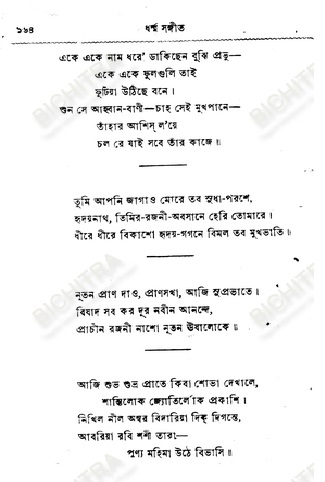 ১৬৪
ধর্ম্ম সঙ্গীত
একে একে নাম ধরে' ডাকিছেন বুঝি প্রভু—
একে একে ফুলগুলি তাই
ফুটিয়া উঠিছে বনে।
শুন সে আহ্বান-বাণী—চাহ সেই মুখপানে—
তাঁহার আশিস্ ল'য়ে
চল রে যাই সবে তাঁর কাজে॥
তুমি আপনি জাগাও মোরে তব সুধা-পরশে,
হৃদয়নাথ, তিমির-রজনী-অবসানে হেরি তোমারে।
ধীরে ধীরে বিকাশো হৃদয়-গগনে বিমল তব মুখভাতি॥
নূতন প্রাণ দাও, প্রাণসখা, আজি সুপ্রভাতে॥
বিষাদ সব কর দূর নবীন আনন্দে,
প্রাচীন রজনী নাশো নূতন ঊষালোকে॥
আজি শুভ শুভ্র প্রাতে কিবা শোভা দেখালে,
শান্তিলোক জ্যোতির্লোক প্রকাশি।
নিখিল নীল অম্বর বিদারিয়া দিক্ দিগন্তে,
আবরিয়া রবি শশী তারা—
পুণ্য মহিমা উঠে বিভাসি॥
BICHITRA